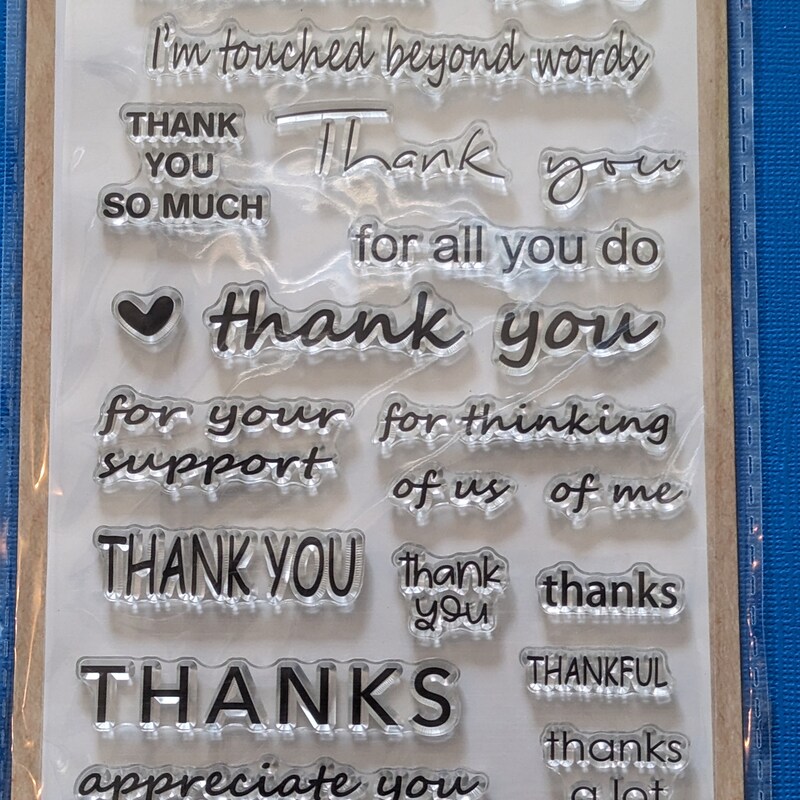 I'm touched beyond words
THANK
YOU
SO MUCH
Thank you
for all you do
thank you
for your
support
for thinking
of us
of me
THANK YOU
thank
you
thanks
THANKS
THANKFUL
thanks
a lot
appreciate you